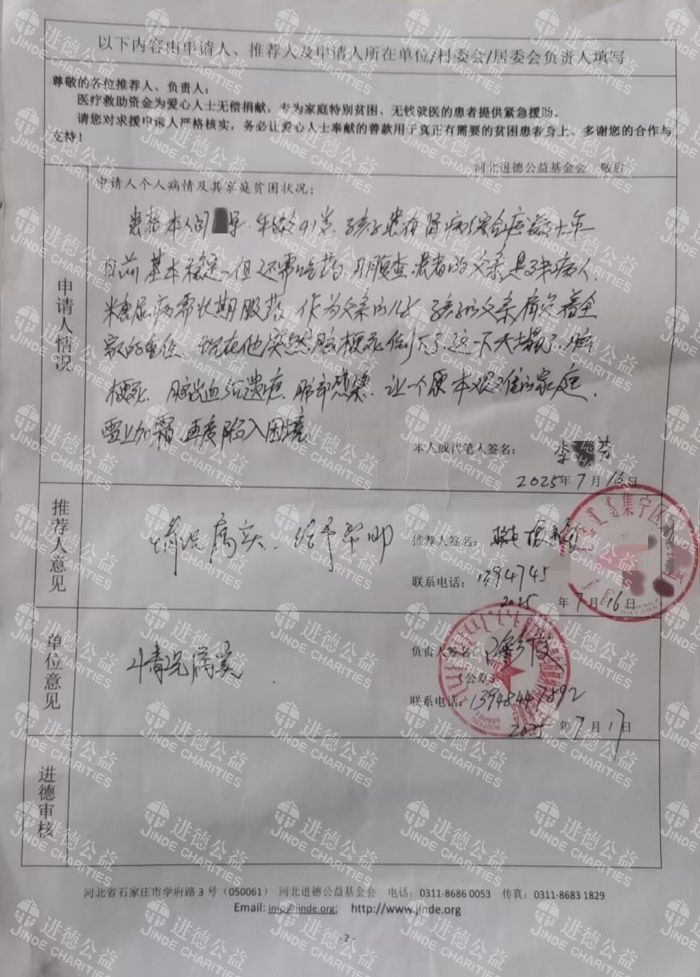 以下内容由申请人、推荐人及申请人所在单位/村委会/居委会负责人填写
尊敬的各位推荐人、负责人:
医疗救助资金为爱心人士无偿捐献，专为家庭特别贫困、无钱就医的患者提供紧急援助。
请您对求援申请人严格核实，务必让爱心人士奉献的善款用于真正有需要的贫困患者身上，多谢您的合作与
支持!
河北进德公益基金会 敬启
申请人情况
申请人个人病情及其家庭贫困状况:
患者本人闫 年龄41岁，孩子患有肾病综合症数十年
目前基本稳定，但还需吃药，月月复查，患者的父亲是残疾人，
糖尿病需长期服药，作为父亲的儿子，孩子的父亲肩负着全
家的重任，现在他突然脑梗死倒下了，这下天塌了，脑
梗死，脑出血后遗症，肺部感染，让一个原本艰难的家庭，
雪上加霜，再度陷入困境
本人或代笔人签名: 李 芳
2025年7月16日
推荐人意见
情况属实，给予帮助
推荐人签名:
联系电话: 1394745
2025年7月16日
集宁区
单位意见
情况属实
负责人签名:
(公章)
联系电话: 1394844 1892
2025年7月17日
进德审核
河北省石家庄市学府路3号 (050061) 河北进德公益基金会 电话: 0311-8686 0053 传真: 0311-8683 1829
Email: info@jinde.org; http://www.jinde.org
-2-
进德公益
JINDE CHARITIES